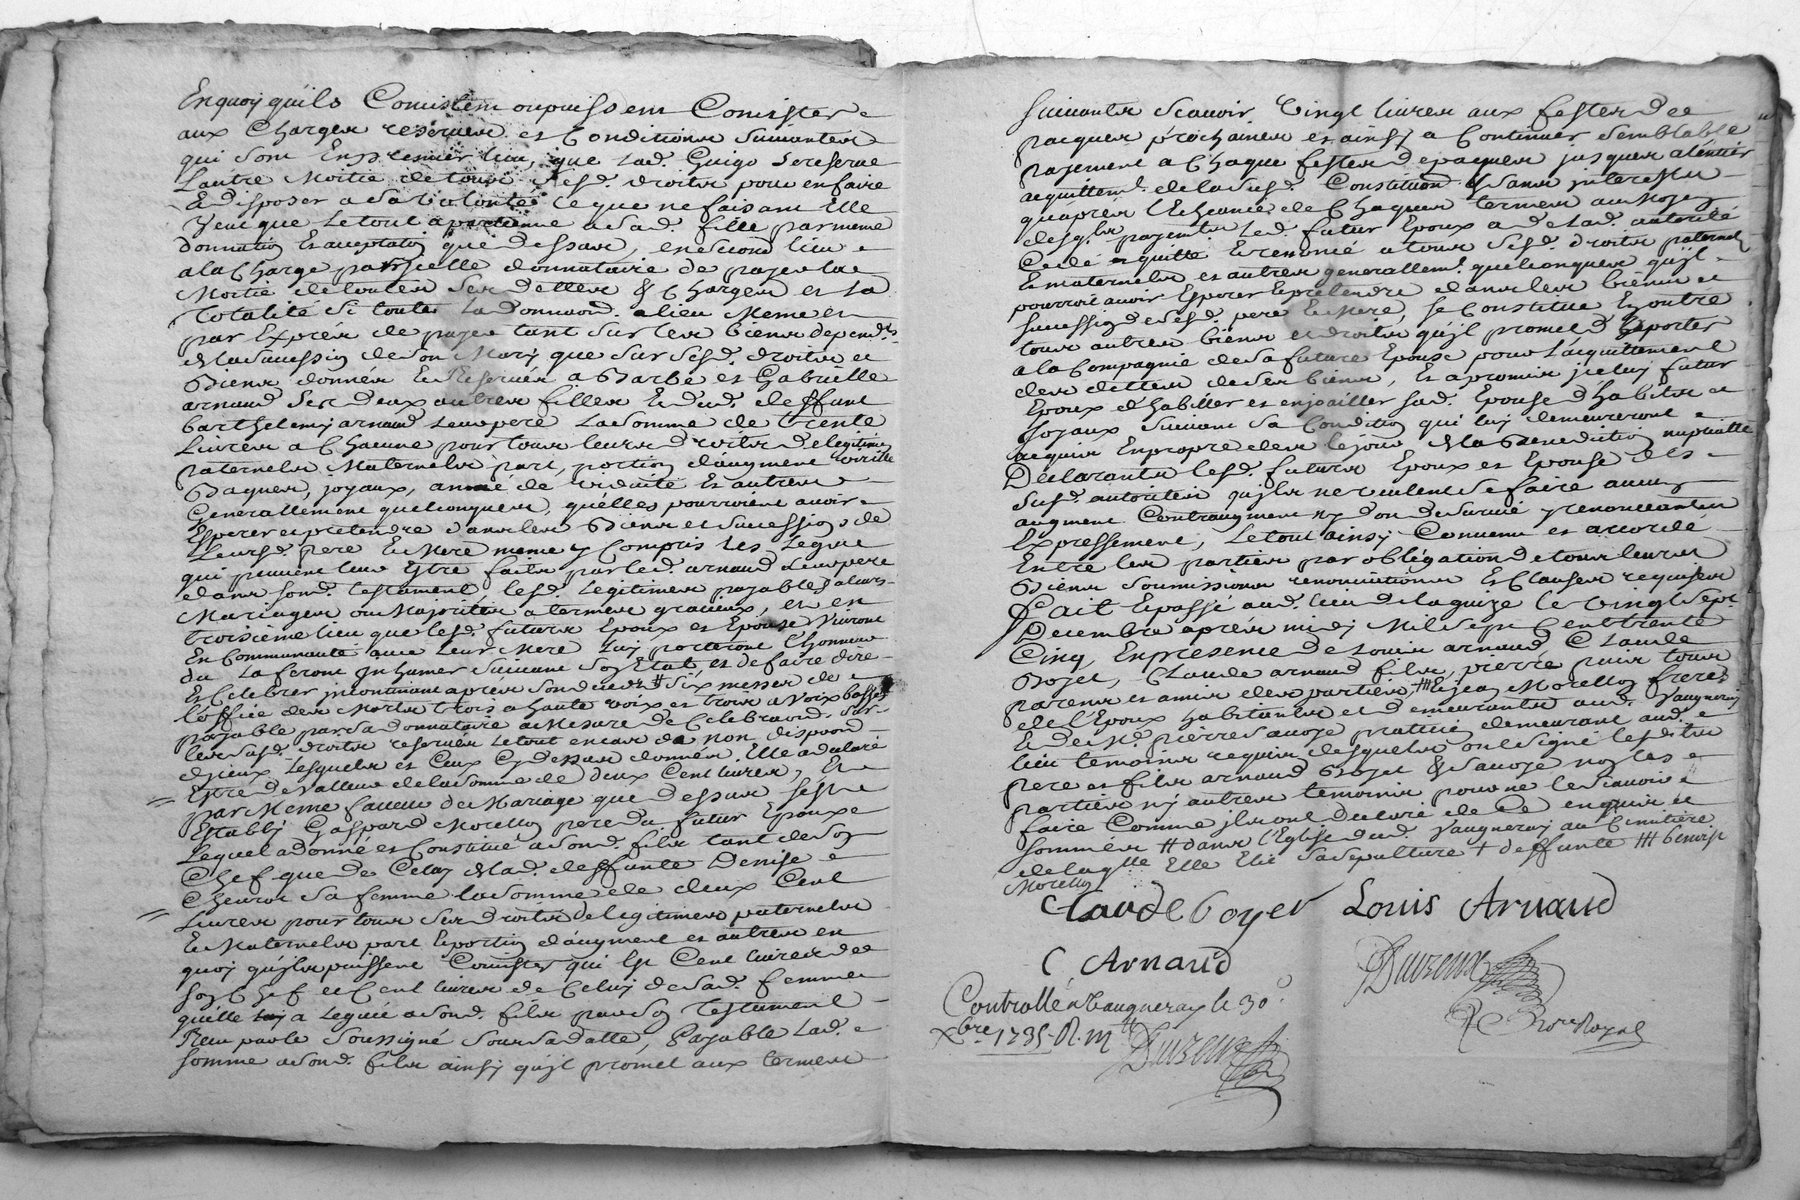 En quoy quils Consistent ou puissent Consister
aux Charges reserves et Conditions Suivantes
qui sont En premier lieu, que lad. Guigo se reserve
Lautre Moitié de tous sesd. droits pour en faire
Et disposer a sa volonté ce que ne faisant Elle
Veut que Le tout apartienne a sad. fille par meme
donnation Et acceptation que dessus, en second lieu
a la Charge par icelle donnataire de payer la
Moitié de toutes Ses dettes & Charges et la
Totalité si toute La donnaon. a lieu Meme et
par Exprés de payer tant sur les biens depend.ts
de la succession de son Mary que sur sesd. droits et
Biens donnés Et Reservés a Barbe et Gabrielle
arnaud ses deux autres filles Et dud. deffunt
barthelemy arnaud leur pere La somme de trente
Livres a Chacune pour tous leurs droits de legitime
paternels Maternels part, portion d'augment virille
Bagues, joyaux, année de viduité Et autres
Generallement quelconques, quelles pourroient avoir
Esperer et pretendre dans les Biens et succession de
Leursd. pere Et Mere meme y Compris les Legats
qui peuvent leur Estre faits par led. arnaud Leur pere
dans sond. testament, lesd. Legitimes payables a leurs
Mariages ou Majorités a termes gracieux, et en
troisième lieu que lesd. futurs Epoux et Epouse Vivront
En Communauté avec leur Mere Luy porteront l'honneur
du La feront Inhumer suivant son Etat et de faire dire
Et Celebrer incontinant apres son deces # six messes de
l'office des Morts trois a haute voix et trois a Voix basse
payable par sa donnataire a Mesure de Celebraon. sur
les sesd. droits reservés Le tout en cas de non disposon
d'jceux Lesquels et Ceux Cy dessus donnés Elle a declaré
Estre de Valleur de la somme de deux Cent livres, Et
par Meme faveur de Mariage que dessus s'est
Etably Gaspard Morellon pere du futur Epoux
Lequel a donné et Constitué a sond. fils tant de son
Chef que de Celuy de lad. deffunte Denise
Cheurot sa femme la somme de deux Cent
Livres pour tous ses droits de legitimes paternels
Et Maternels part Et portion d'augment et autres en
quoy quils puissent Consister qui est Cent livres de
son Chef et Cent livres de Celuy de sad. femme
quelle a Legué a sond. fils par son Testament
Reçu par le Soussigné sous sa datte, Payable Lad.
somme a sond. fils ainsy quil promet aux termes
suivants scavoir Vingt livres aux festes de
pacques prochaines et ainsy a Continuer semblable
payement a Chaque festes de pacques jusques a l'entier
acquittem.t de lasusd. Constituon. & sans jnterests
quaprés l'Echeance de Chaques termes au Moyen
desq.ls payem.ts Led. futur Epoux a de lad. autorité
Cedé quitté Et renoncé a tous sesd. droits paternels
Et maternels et autres generallem.t quelconques quil
pourroit avoir Esperer Et pretendre dans les biens et
succession de sesd. pere Et Mere, se Constitue En outre
tous autres biens et droits quil promet d'Eporter
a la Compagnie de sa future Epouse pour L'acquittement
des dettes de ses biens, Et a promis jceluy futur
Epoux d'habiller et enjoailler sad. Epouse d'habits et
Joyaux suivant sa Condition qui luy demeureront
acquis En propre des le jour de la Benediction nuptialle
Declarants lesd. futurs Epoux et Epouse des
susd. autorites quils ne veulent se faire aucun
augment Contraugment ny don de survie y renonceants
Expressement, Le tout ainsy Convenu et accordé
Entre les parties par obligation de tous leurs
Biens soumissions renonciations Et Clauses requises
Fait Et passé aud. lieu de la guize le Vingt Sept
Decembre aprés midy Mil sept Cent trente
Cinq, En presence de Louis arnaud Claude
Boyet, Claude arnaud fils, pierre tous
parens et amis des parties, # Et jean Morellon frere
de l'Epoux habitants et demeurants aud. Vaugneray
Et de M.e pierre Savoye praticien demeurant aud.
lieu temoins requis desquels ont signé lesd. dits
pere et fils arnaud Boyet & Savoye non les
parties ny autres temoins pour ne le scavoir
faire Comme ils ont declaré de Ce enquis et
sommés # dans l'Eglise dud. Vaugneray au Cimitière
de laq.lle Elle Elit sa sepulture + deffunte # benoist
Morellon
Claude Boyet Louis Arnaud
C Arnaud
Controllé a Vaugneray le 30.e
Xbre 1735. R.
Nore Royal